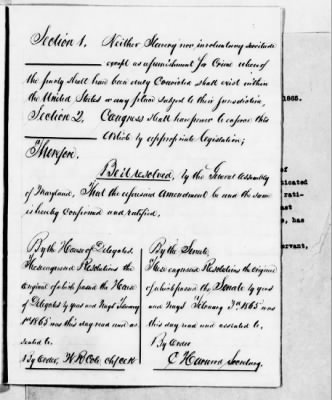 Section 1. Neither Slavery nor involuntary servitude
except as a punishment for Crime whereof
the party shall have been duly Convicted shall exist within
the United States or any place subject to their jurisdiction,
Section 2. Congress shall have power to enforce this
Article by appropriate legislation;
Therefore.
Be it resolved, by the General Assembly
of Maryland, That the aforesaid Amendment be and the same
is hereby confirmed and ratified.
By the House of Delegates.
These engrossed Resolutions the
original of which passed the House
of Delegates by yeas and nays February
1st 1865 was this day read and as
sented to.
By Order, W R Cole, Chf Clk
By the Senate,
These engrossed Resolutions the original
of which passed the Senate by yeas
and nays February 3rd 1865 was
this day read and assented to,
By Order
C Harwood Secretary.
1865.
of
nicated
rati-
ast
e, has
ervant,